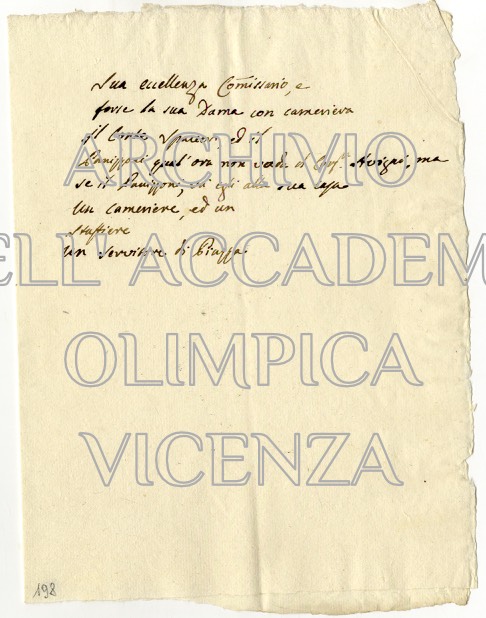 Sua eccellenza Comissario, e
forse la sua Dama con cameriera
il Conte ed il
qual'ora non vada ma
se il và egli alla sua casa
Un cameriere, ed un
staffiere
un Servitore di Piazza
ARCHIVIO
ELL'ACCADEM
OLIMPICA
VICENZA
198